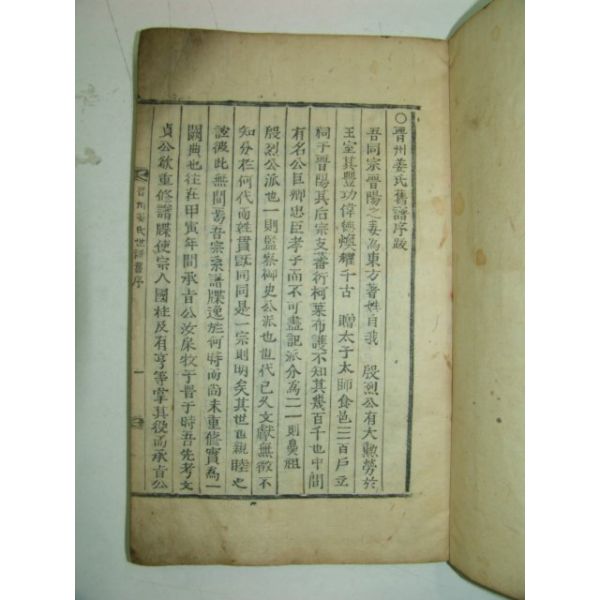 ○晋州姜氏舊譜序跋
吾同宗晋陽之姜爲東方著姓自我 殷烈公有大勳勞於
王室其豐功偉烈燀耀千古 贈太子太師食邑三百戶立
祠于晋陽其后宗支蕃衍柯葉布護不知其幾百千也中間
有名公巨卿忠臣孝子而不可盡記派分爲二一則鼻祖
殷烈公派也一則監察御史公派也世代已久文獻無徵不
知分於何代而姓貫旣同同是一宗則明矣其世世親睦也
該彼此無間焉吾宗宗譜牒逸於何時而尚未重修實爲一
闕典也往在甲寅年間承旨公汝㞗牧于晋于時吾先考文
貞公欲重修譜牒使宗人國柱及有亨等掌其役而承旨公
晋州姜氏世譜舊序 一